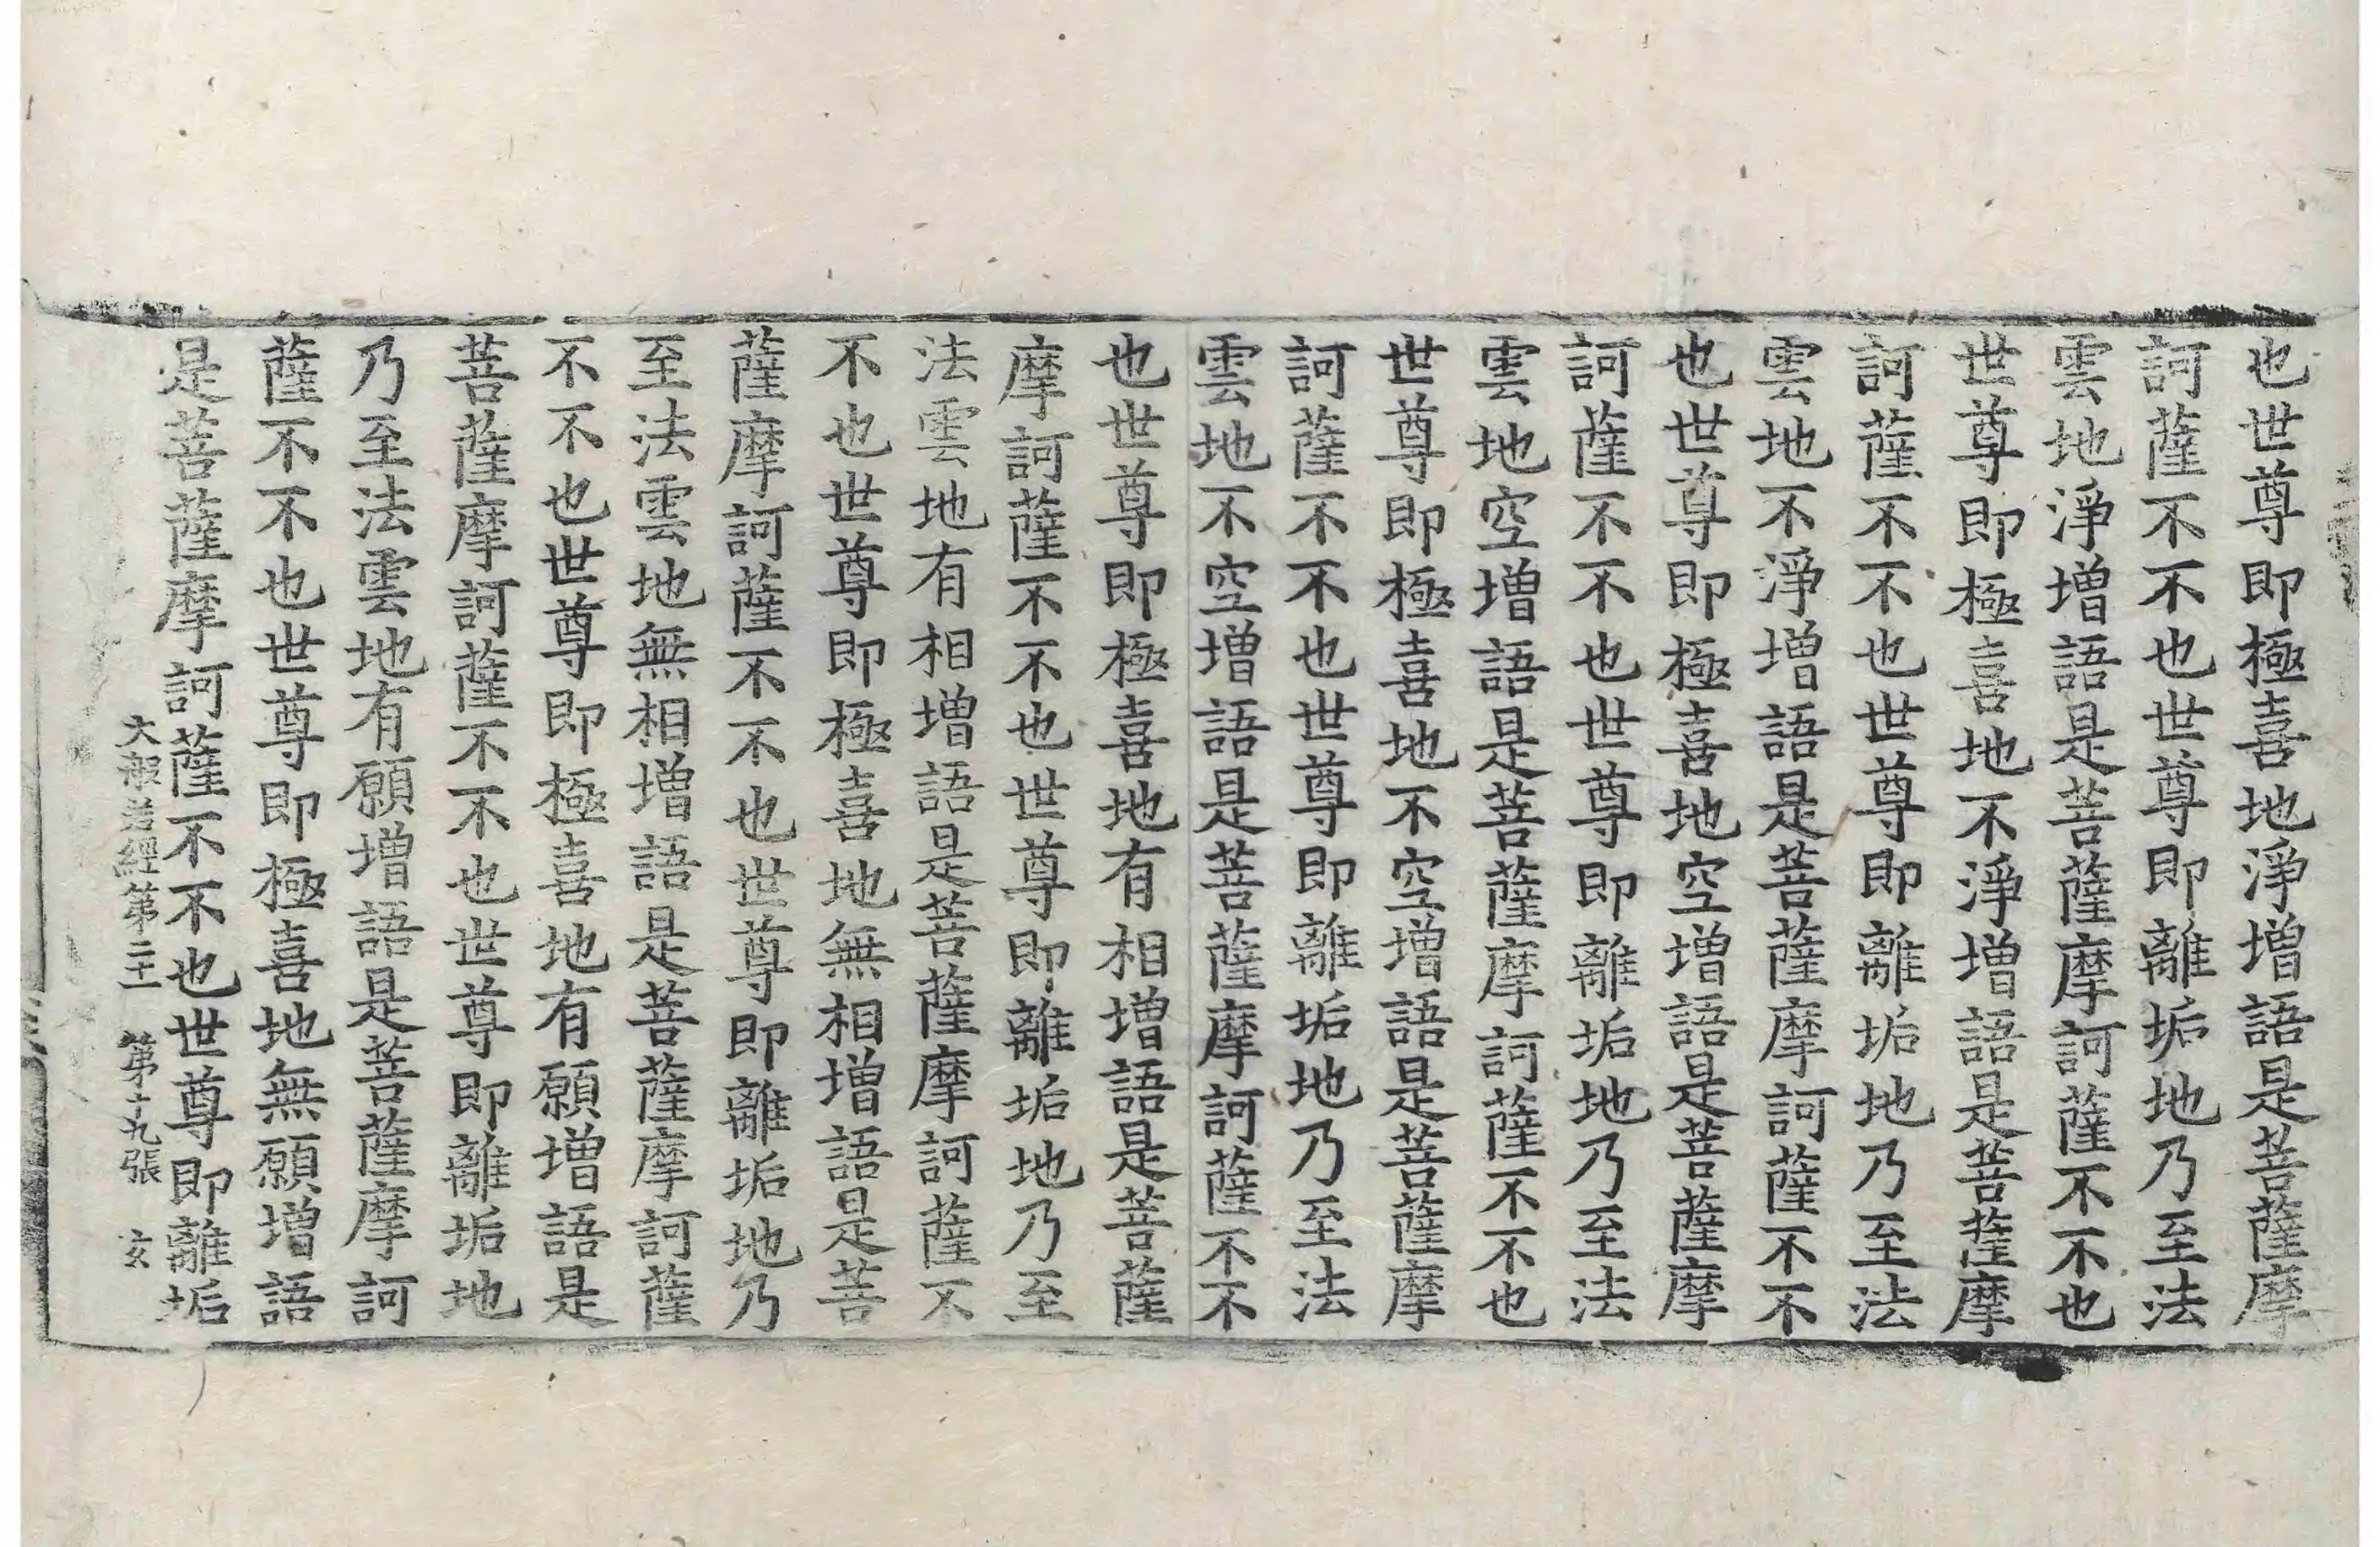 也世尊即極喜地淨增語是菩薩摩
訶薩不不也世尊即離垢地乃至法
雲地淨增語是菩薩摩訶薩不不也
世尊即極喜地不淨增語是菩薩摩
訶薩不不也世尊即離垢地乃至法
雲地不淨增語是菩薩摩訶薩不不
也世尊即極喜地空增語是菩薩摩
訶薩不不也世尊即離垢地乃至法
雲地空增語是菩薩摩訶薩不不也
世尊即極喜地不空增語是菩薩摩
訶薩不不也世尊即離垢地乃至法
雲地不空增語是菩薩摩訶薩不不
也世尊即極喜地有相增語是菩薩
摩訶薩不不也世尊即離垢地乃至
法雲地有相增語是菩薩摩訶薩不
不也世尊即極喜地無相增語是菩
薩摩訶薩不不也世尊即離垢地乃
至法雲地無相增語是菩薩摩訶薩
不不也世尊即極喜地有願增語是
菩薩摩訶薩不不也世尊即離垢地
乃至法雲地有願增語是菩薩摩訶
薩不不也世尊即極喜地無願增語
是菩薩摩訶薩不不也世尊即離垢
大般若經第二十 第十九張